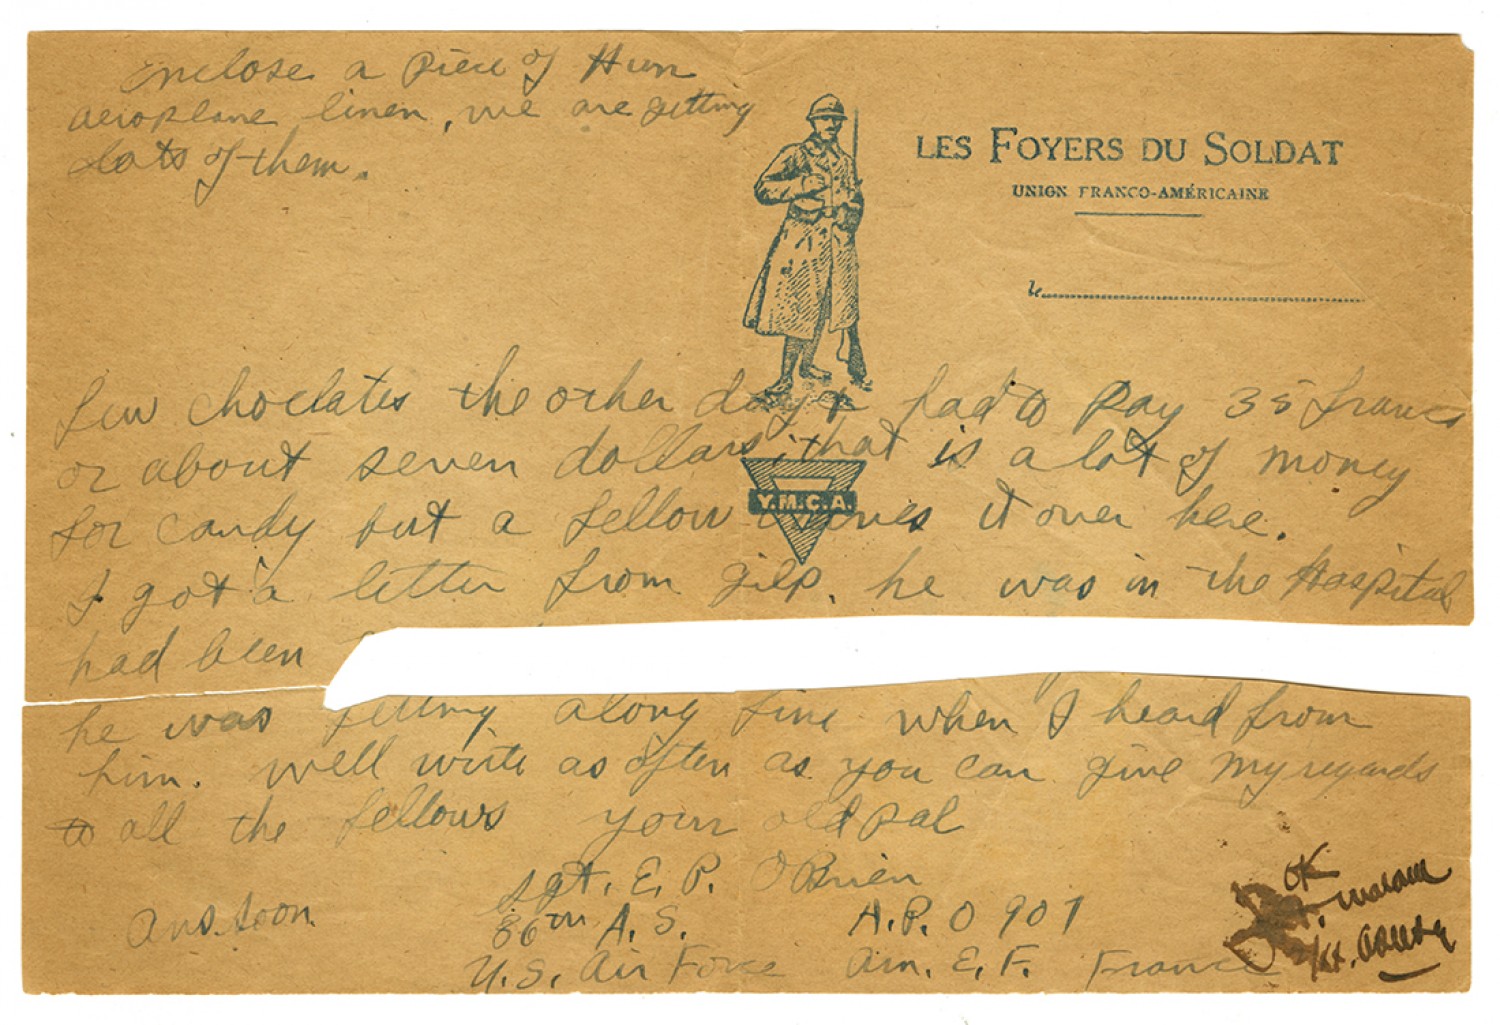 Enclose a piece of Hun
aeroplane linen, we are getting
lots of them.
LES FOYERS DU SOLDAT
UNION FRANCO-AMÉRICAINE
le
few choclates the other day & had to pay 35 francs
or about seven dollars, that is a lot of money
Y.M.C.A.
for candy but a fellow craves it over here.
I got a letter from Gilp. he was in the Hospital
had been
he was getting along fine when I heard from
him. well write as often as you can give my regards
to all the fellows your old pal
Sgt. E. P. O'Brien
Ans. soon. 86th A. S. A.P.O 907
U.S. Air Force Am. E. F. France
OK
1st.